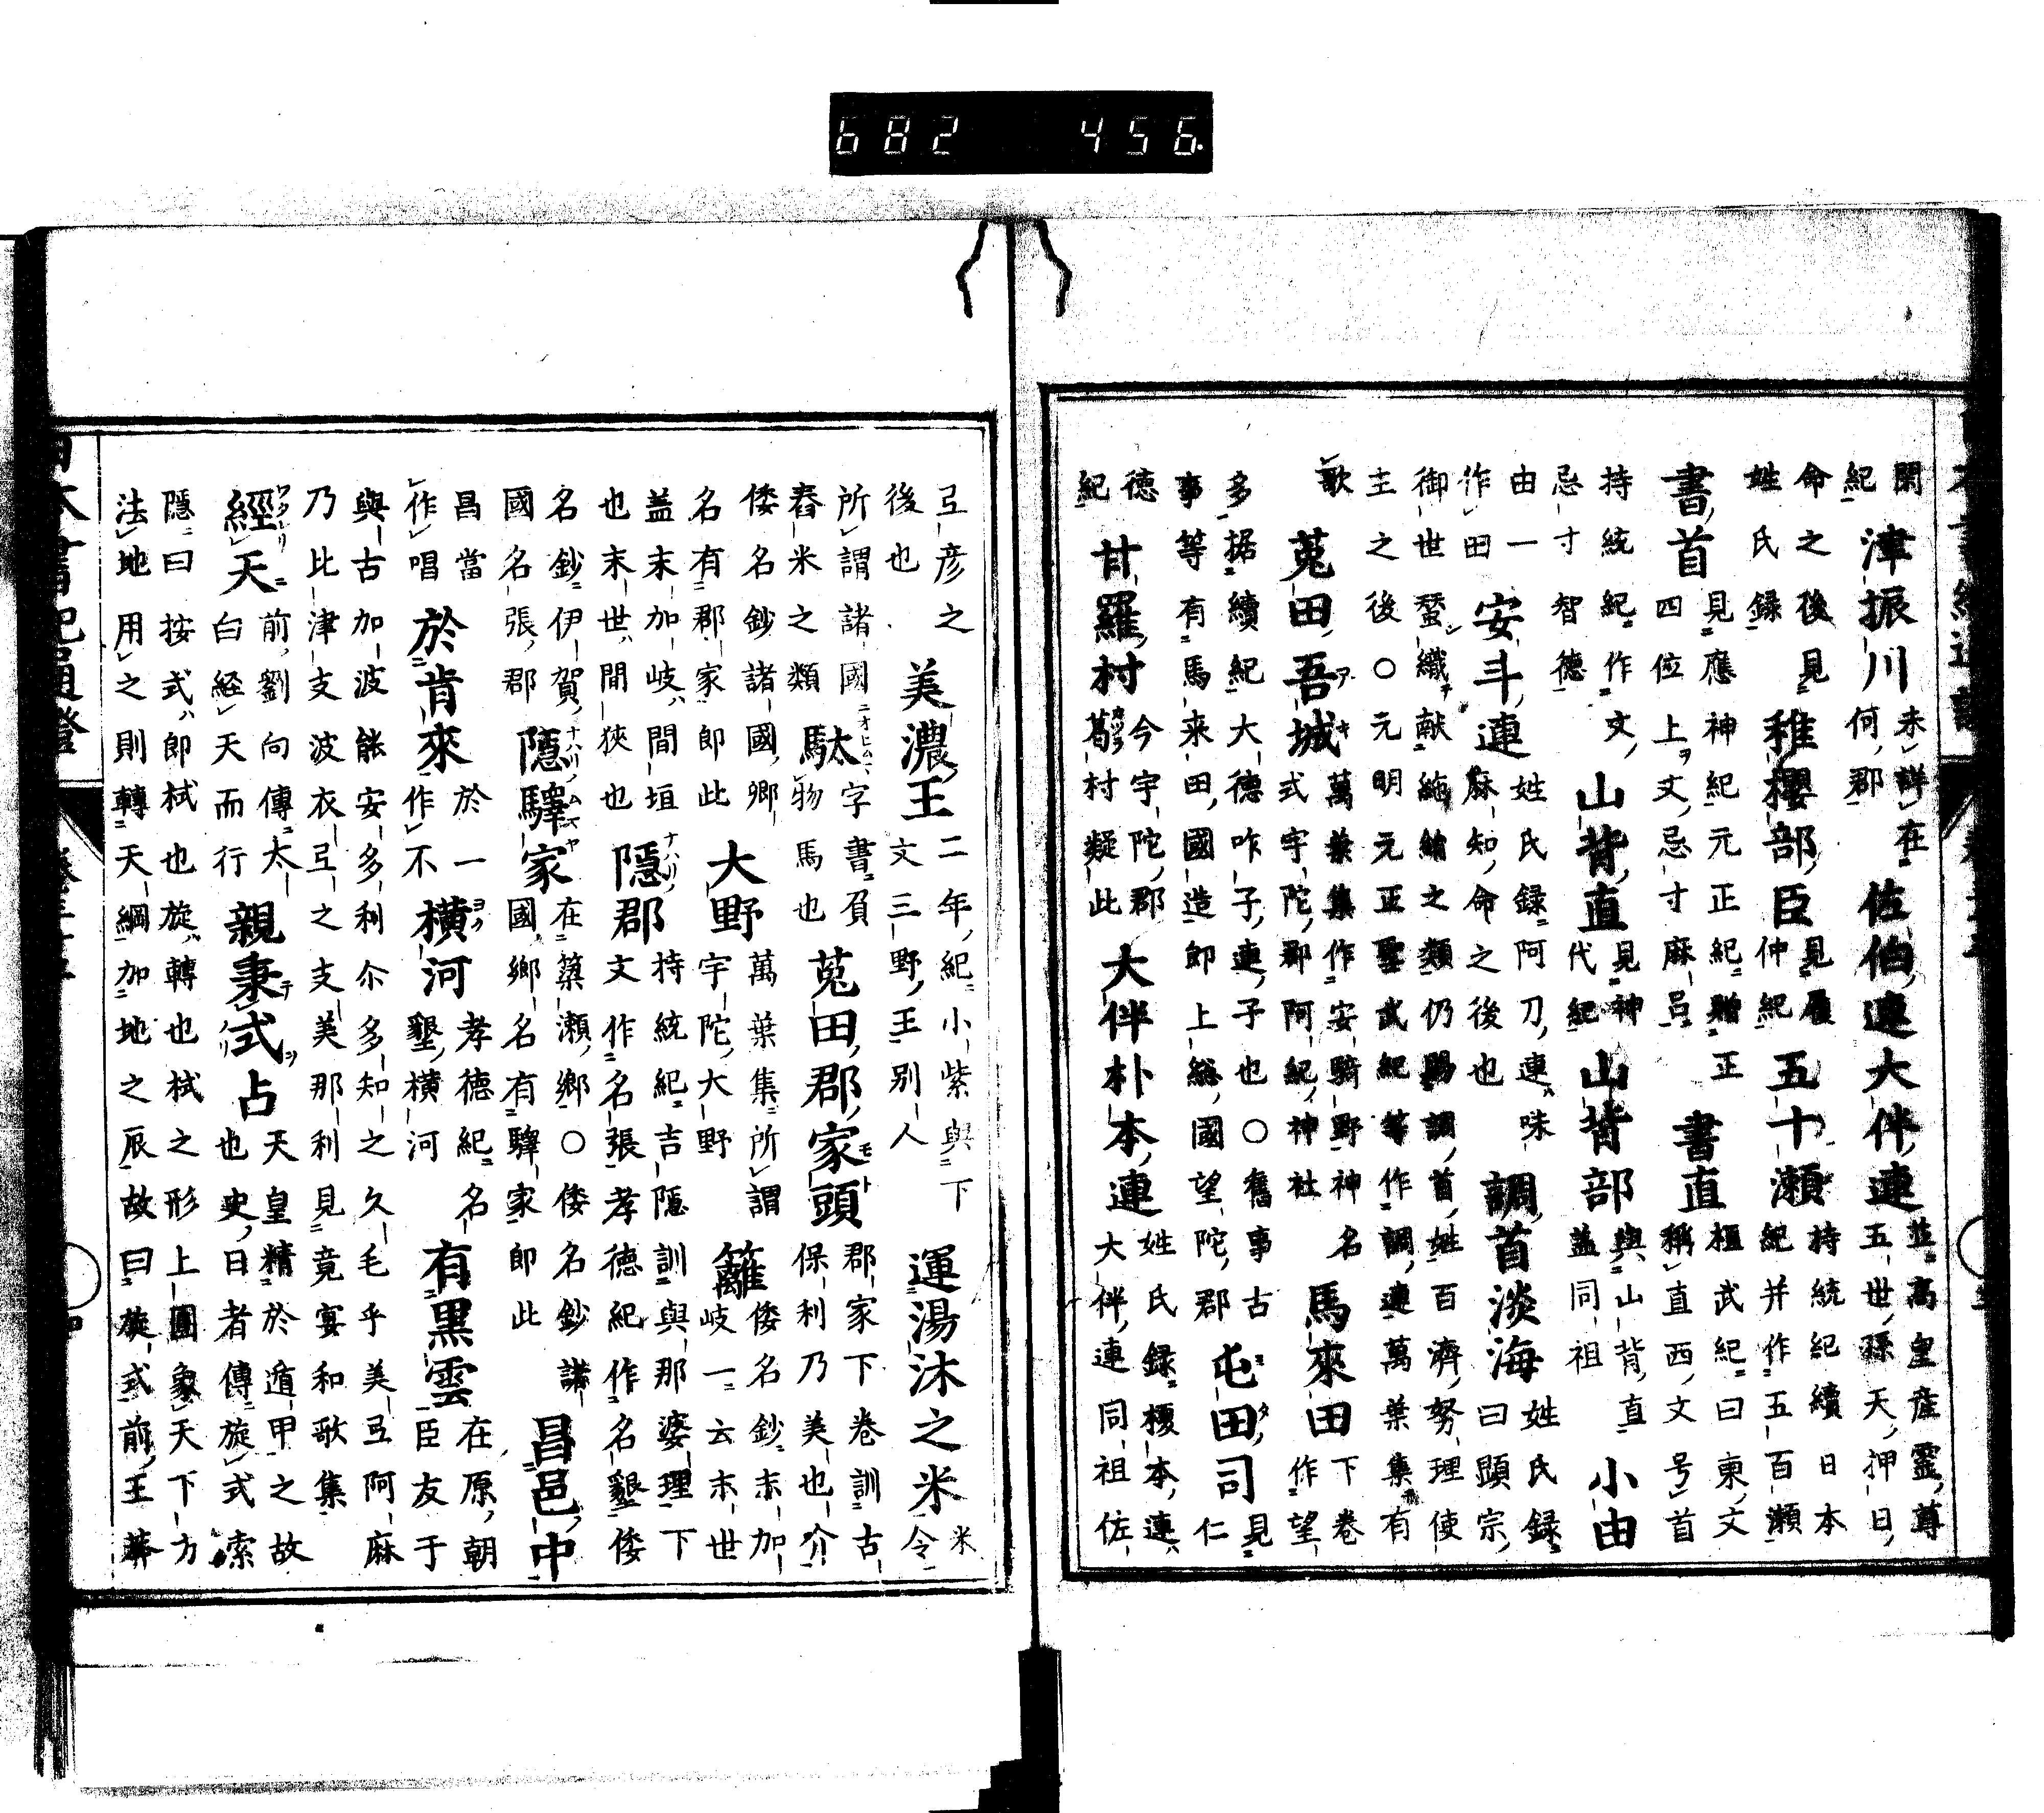 682 456
閑津振川未詳在
紀何郡佐伯連大伴連並高皇産靈尊
五世孫天押日
命之後見稚櫻部臣見履
姓氏録仲紀五十瀬持統紀續日本
紀并作五百瀬
書首見應神紀元正紀贈正
四位上文忌寸麻呂書直桓武紀曰東文
稱直西文号首
持統紀作文山背直見神
忌寸智德代紀山背部與山背直
蓋同祖小由
由一
作田安斗連姓氏録阿刀連味
麻知命之後也調首淡海姓氏録
曰顕宗
御世蚕織献絁絹之類仍賜調首姓百濟努理使
主之後○元明元正聖武紀等作調連萬葉集有
歌菟田吾城萬葉集作安騎野神名
式宇陀郡阿紀神社馬來田下卷
作望
多据續紀大德咋子連子也○舊事古
事等有馬来田國造即上総國望陀郡屯田司見
仁
德
紀甘羅村今宇陀郡
葛村疑此大伴朴本連姓氏録榎本連
大伴連同祖佐
弖彦之
後也美濃王二年紀小紫與下
文三野王別人運湯沐之米米
令
所謂諸國
舂米之類駄字書負
物馬也菟田郡家頭郡家下卷訓古
保利乃美也介
倭名鈔諸國郷
名有郡家即此大野萬葉集所謂
宇陀大野籬倭名鈔末加
岐一云末世
盖末加岐間垣
也末世間狹也隱郡持統紀吉隱訓與那婆理下
文作名張孝德紀作名墾倭
名鈔伊賀
國名張郡隱驛家在簗瀬郷○倭名鈔諸
國郷名有驛家即此昌邑中
昌當
作唱於肯來於一
作不横河孝德紀名
墾横河有黒雲在原朝
臣友于
與古加波能安多利尒多知之久毛乎美弖阿麻
乃比津支波衣弖之支美那利見竟宴和歌集
經天前劉向傳太
白経天而行親秉式占天皇精於遁甲之故
也史日者傳旋式索
隱曰按式即栻也旋轉也栻之形上圓象天下方
法地用之則轉天綱加地之辰故曰旋式前王莽